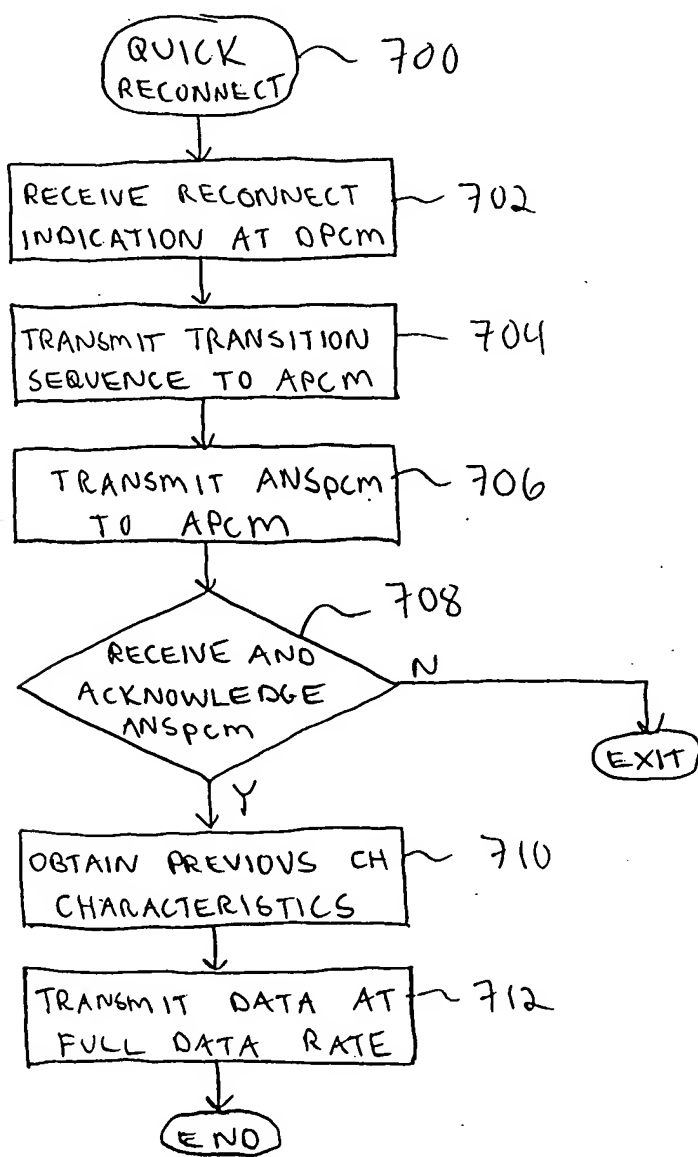 QUICK
RECONNECT
700
RECEIVE RECONNECT
INDICATION AT DPCM
702
TRANSMIT TRANSITION
SEQUENCE TO APCM
704
TRANSMIT ANSpcm
TO APCM
706
708
RECEIVE AND
ACKNOWLEDGE
ANSpcm
N
EXIT
Y
OBTAIN PREVIOUS CH
CHARACTERISTICS
710
TRANSMIT DATA AT
FULL DATA RATE
712
END